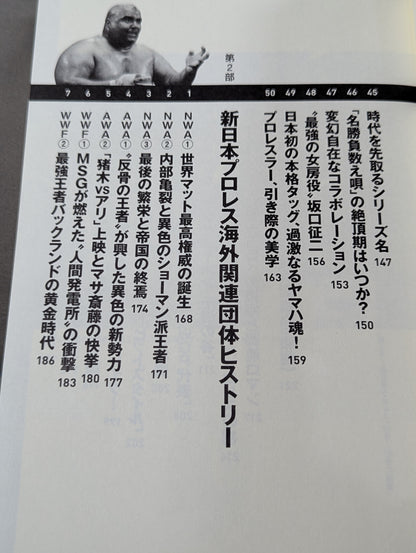 45 時代を先取るシリーズ名 147
46 「名勝負数え唄」の絶頂期はいつか? 150
47 変幻自在なコラボレーション 153
48 “最強の女房役”坂口征二 156
49 日本初の本格タッグ、過激なるヤマハ魂! 159
50 プロレスラー、引き際の美学 163
第2部
新日本プロレス海外関連団体ヒストリー
1 NWA① 世界マット最高権威の誕生 168
2 NWA② 内部亀裂と異色のショーマン派王者 171
3 NWA③ 最後の繁栄と帝国の終焉 174
4 AWA① “反骨の王者”が興した異色の新勢力 177
5 AWA② 「猪木vsアリ」上映とマサ斎藤の快挙 180
6 WWF① MSGが燃えた“人間発電所”の衝撃 183
7 WWF② 最強王者バックランドの黄金時代 186